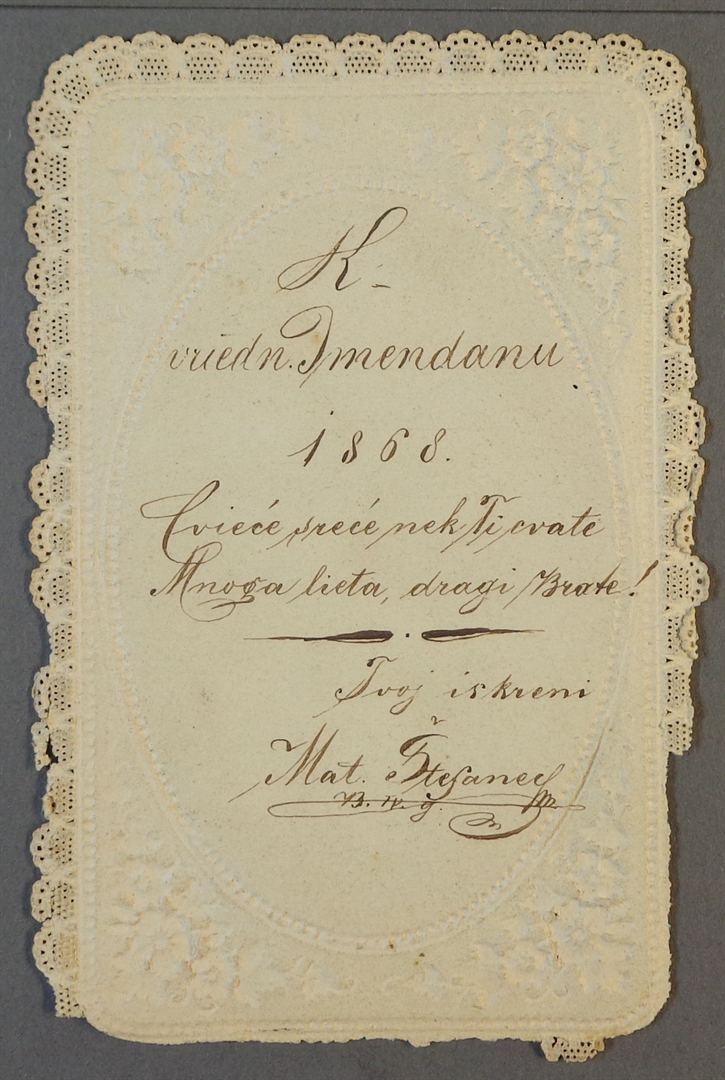 K-
vriedn. Imendanu
1868.
Cvieće sreće nek Ti cvate
Mnoga lieta, dragi Brate!
Tvoj iskreni
Mat. Štefanec